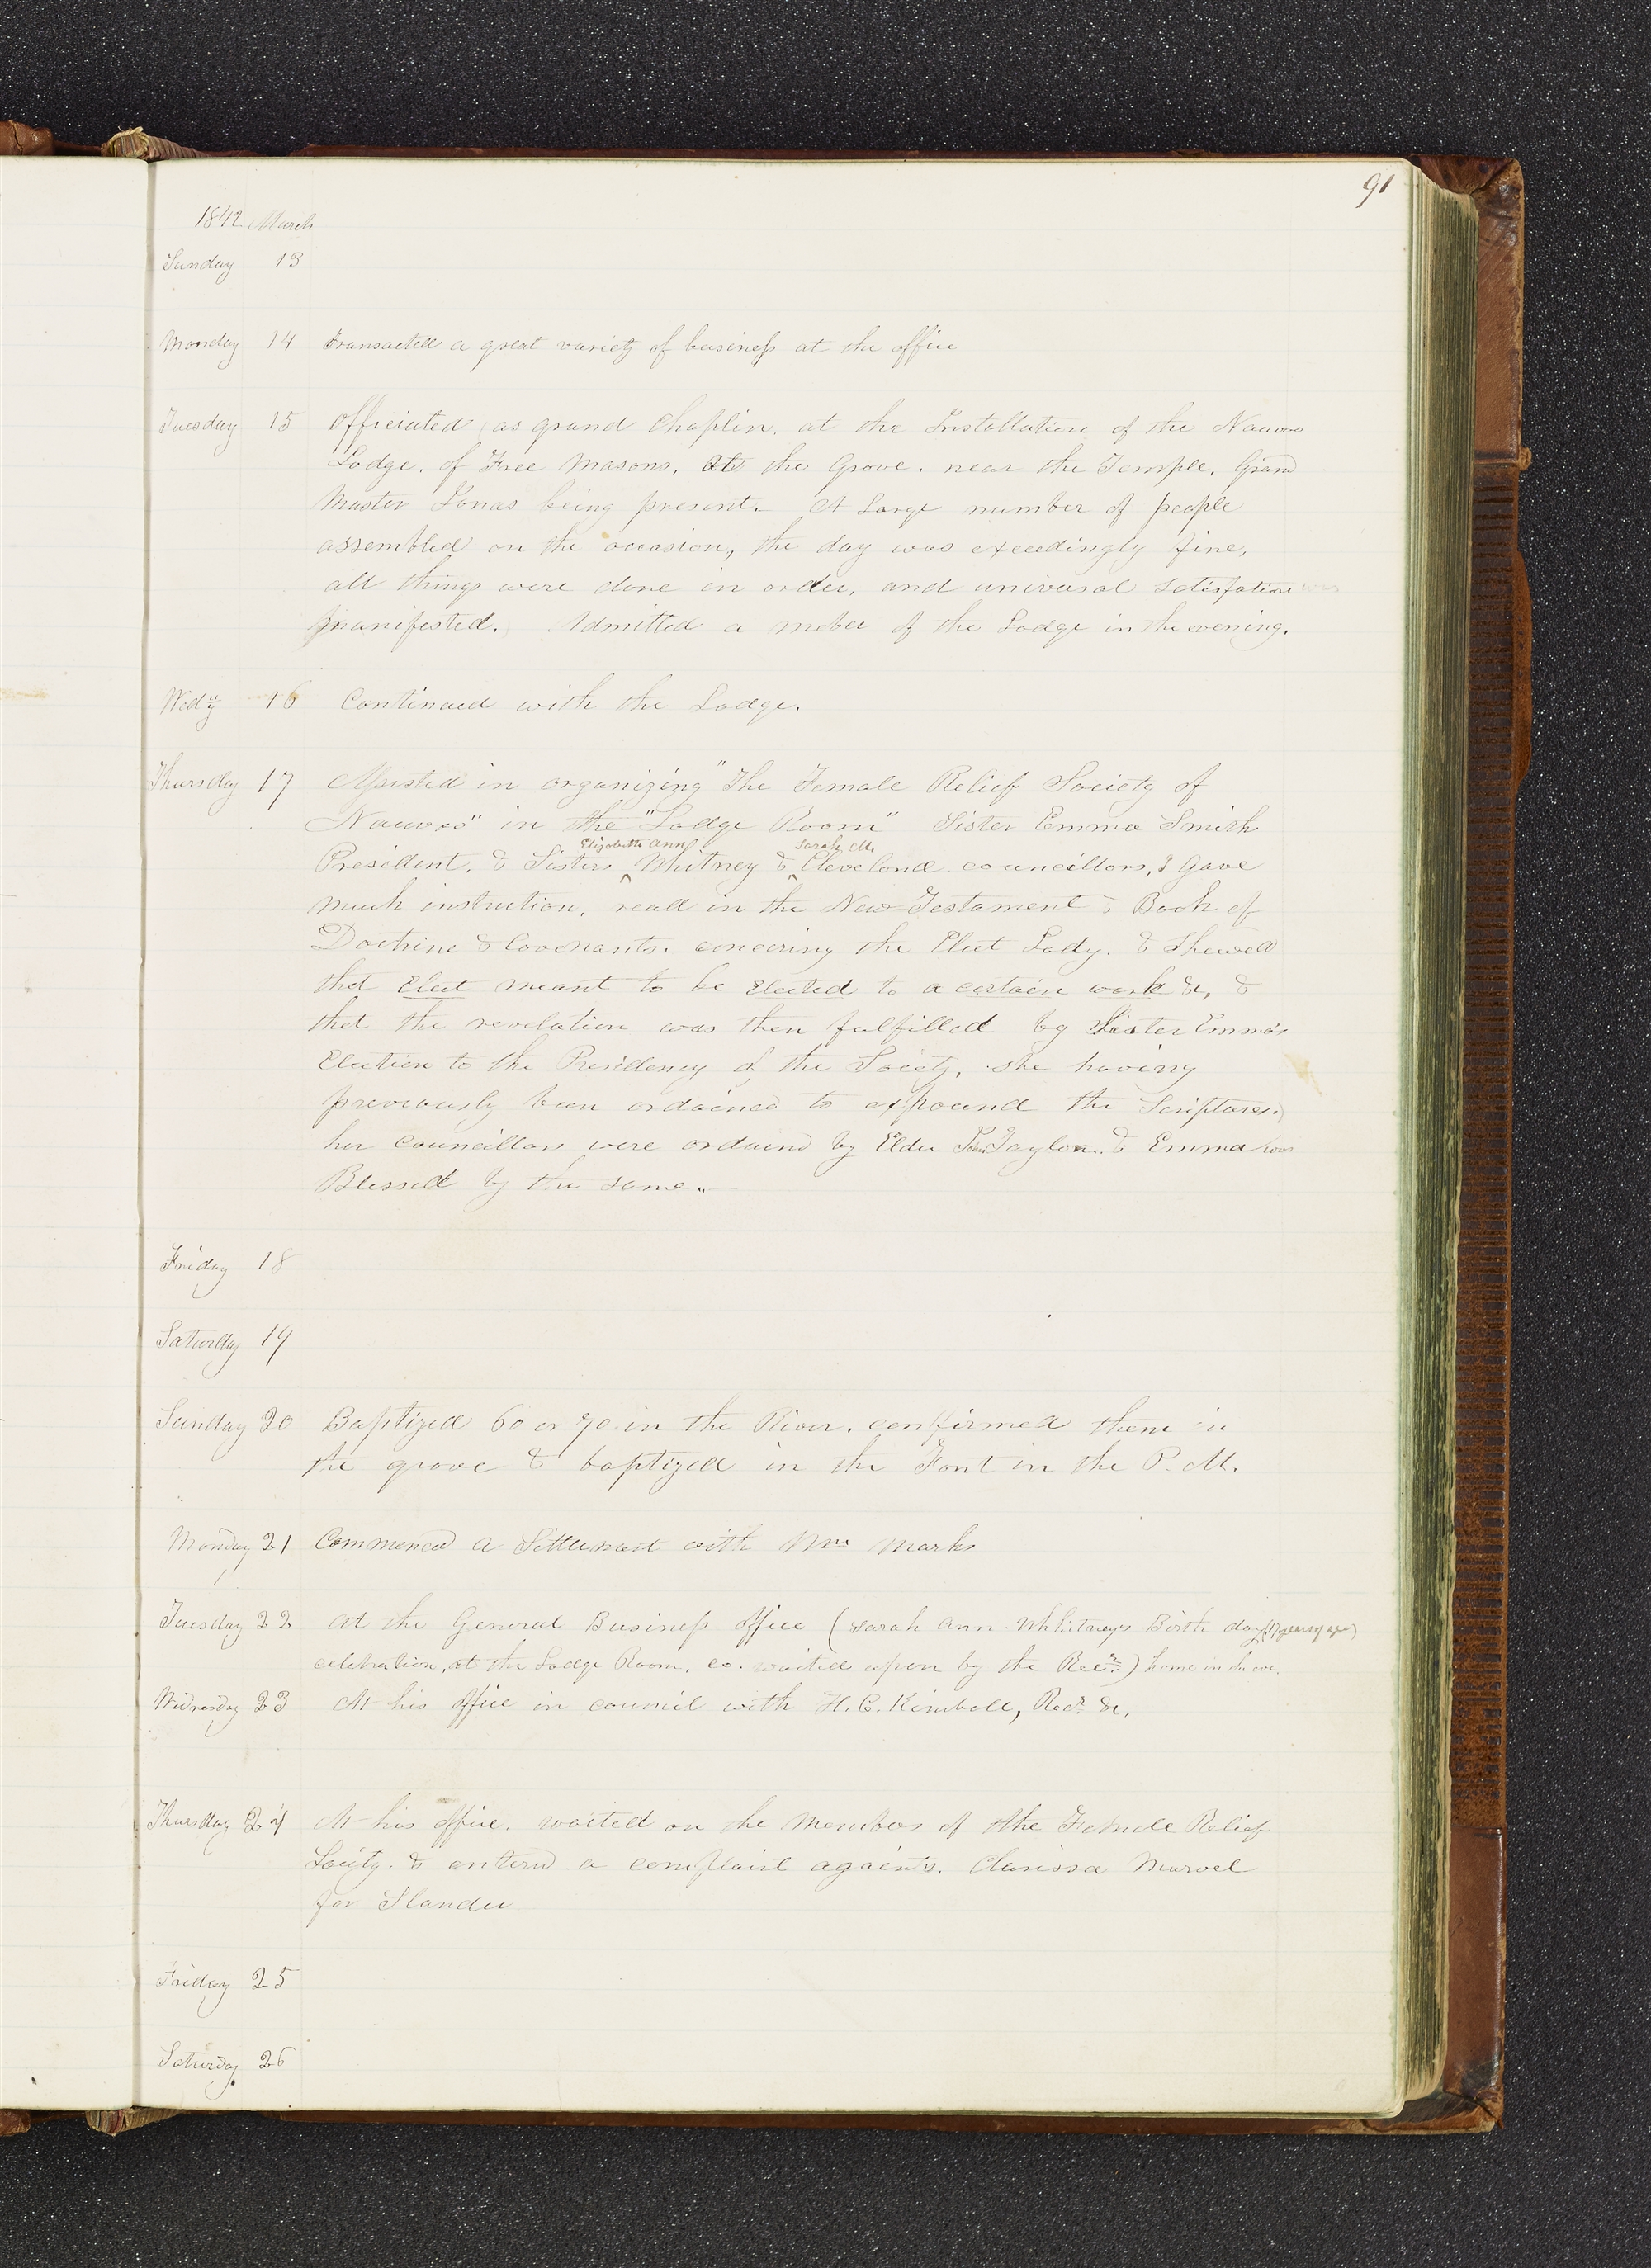 91
1842 March
Sunday 13
Monday 14 transacted a great variety of business at the office
Tuesday 15 officiated as grand Chaplin. at the Installation of the Nauvoo
Lodge. of Free Masons, At the Grove. near the Temple. Grand
Master Jonas being present.- A Large number of people
assembled on the occasion, the day was exceedingly fine,
all things were done in order, and universal satisfation was
manifested. Admitted a meber of the Lodge in the evening.
Wedy 16 Continued with the Lodge.
Thursday 17 Assisted in organizing "The Female Relief Society of
Nauvoo" in the "Lodge Room" Sister Emma Smith
Elizabeth Ann Sarah M.
President, & Sisters Whitney & Cleveland councillors, & Gave
much instruction, read in the New Testament & Book of
Doctrine & Covenants. concering the Elect Lady. & Shewed
that Elect meant to be Elected to a certain work &c, &
that the revelation was then fulfilled by Sister Emma's
Election to the Presidency of the Soceity, she having
previously been ordained to expound the Scriptures.
her councillors were ordaind by Elder J. Taylor. & Emma was
Blessed by the same.-
Friday 18
Saturday 19
Sunday 20 Baptized 60 or 70 in the River. confirmed them in
the grove & baptized in the Font in the P.M.
Monday 21 Commenced a Settlement with Wm Marks
Tuesday 22 at the General Business office (Sarah Ann Whitney's Birth day (17 years ago)
celebration, at the Lodge Room. co. waited upon by the Recr.) home in the eve.
Wednesday 23 At his office in council with H. C. Kimball, Recr. &c.
Thursday 24 At his office. waited on the Members of the Female Relief
Society. & enterd a complaint against. Clarissa Marvel
for Slander
Friday 25
Saturday 26